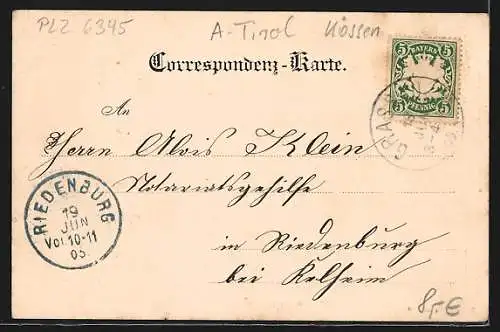 PLZ 6345
A-Tirol Kössen
Correspondenz-Karte.
5 BAYERN 5
5 PFENNIG 5
GRAS
An
Herrn Alois Klein
Notariatsgehilfe
in Riedenburg
bei Kelheim
RIEDENBURG
19
JUN
Vor.10-11
05.
8,-€